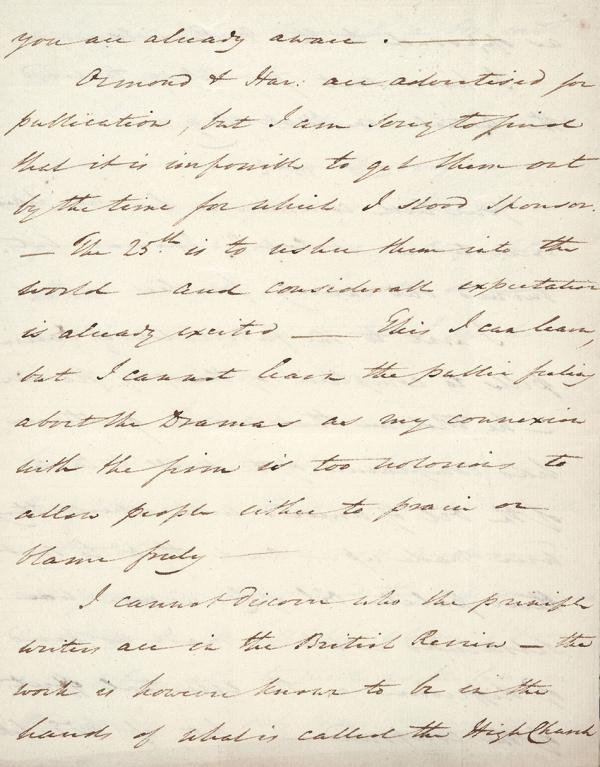 you are already aware . ———
Ormond & Har: are advertised for
publication, but I am sorry to find
that it is impossible to get them out
by the time for which I stood Sponsor.
— The 25.th is to usher them into the
world — and considerable expectation
is already excited —— This I can learn,
but I cannot learn the public feeling
about the Dramas as my connexion
with the firm is too notorious to
allow people either to praise or
blame freely ——
I cannot discover who the principle
writers are in the British Review — the
work is however known to be in the
hands of what is called the High Church